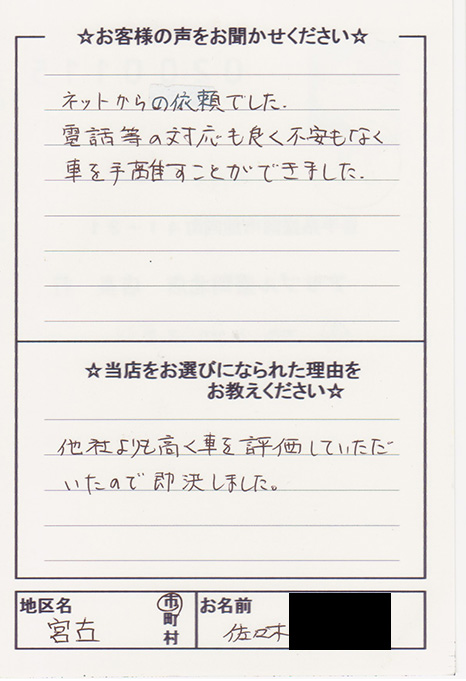 ☆お客様の声をお聞かせください☆
ネットからの依頼でした.
電話等の対応も良く不安もなく
車を手離すことができました.
☆当店をお選びになられた理由を
お教えください☆
他社よりも高く車を評価していただ
いたので即決しました。
地区名
宮古
市
町
村
お名前
佐々木